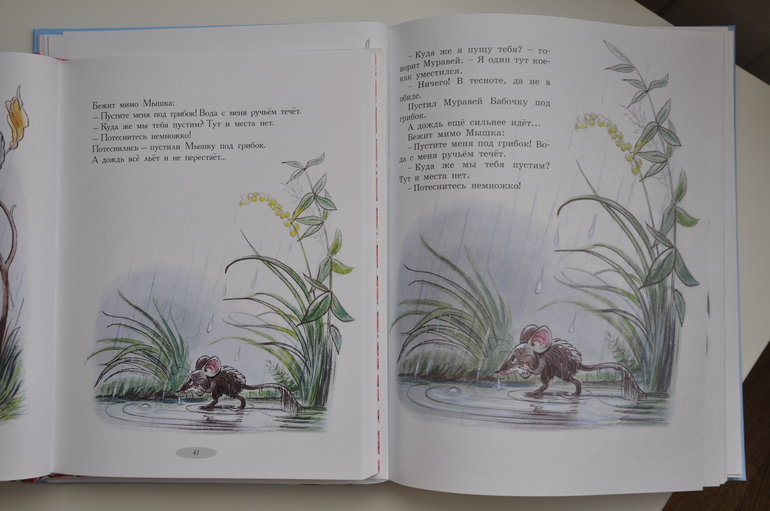 Бежит мимо Мышка:
– Пустите меня под грибок! Вода с меня ручьём течёт.
– Куда же мы тебя пустим? Тут и места нет.
– Потеснитесь немножко!
Потеснились – пустили Мышку под грибок.
А дождь всё льёт и не перестаёт...
41
– Куда же я пущу тебя? – го-
ворит Муравей. – Я один тут кое-
как уместился.
– Ничего! В тесноте, да не в
обиде.
Пустил Муравей Бабочку под
грибок.
А дождь ещё сильнее идёт...
Бежит мимо Мышка:
– Пустите меня под грибок! Во-
да с меня ручьём течёт.
– Куда же мы тебя пустим?
Тут и места нет.
– Потеснитесь немножко!